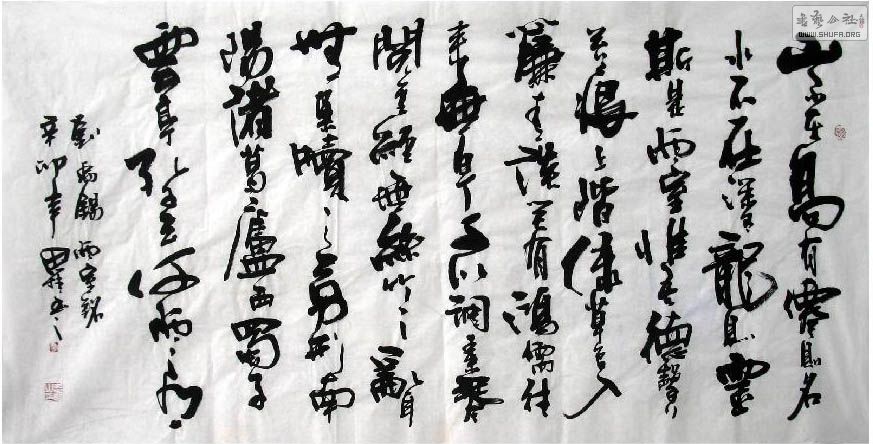 山不在高有僊則名
水不在深龍則靈
斯是陋室惟吾德馨
苔痕上階綠草色入
簾青談笑有鴻儒往
來無白丁可以調素琴
閱金經無絲竹之亂耳
無案牘之勞形南
陽諸葛廬西蜀子
雲亭孔子云何陋之有
劉禹錫陋室銘
辛卯年
书艺公社
WWW.SHUFA.ORG